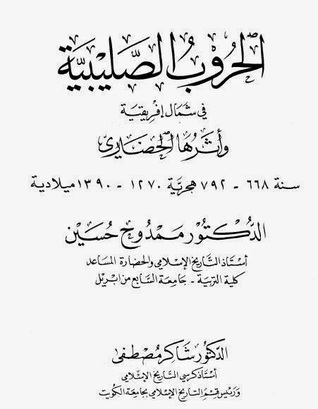 الحروب الصليبية
في شمال إفريقية
وأثرها الحضاري
سنة ٦٦٨ - ٧٩٢ هجرية ١٢٧٠ - ١٣٩٠ ميلادية
الدكتور ممدوح حسين
أستاذ التاريخ الإسلامي والحضارة المساعد
كلية التربية - جامعة السابع من ابريل
الدكتور شاكر مصطفى
أستاذ كرسي التاريخ الإسلامي
ورئيس قسم التاريخ الإسلامي بجامعة الكويت